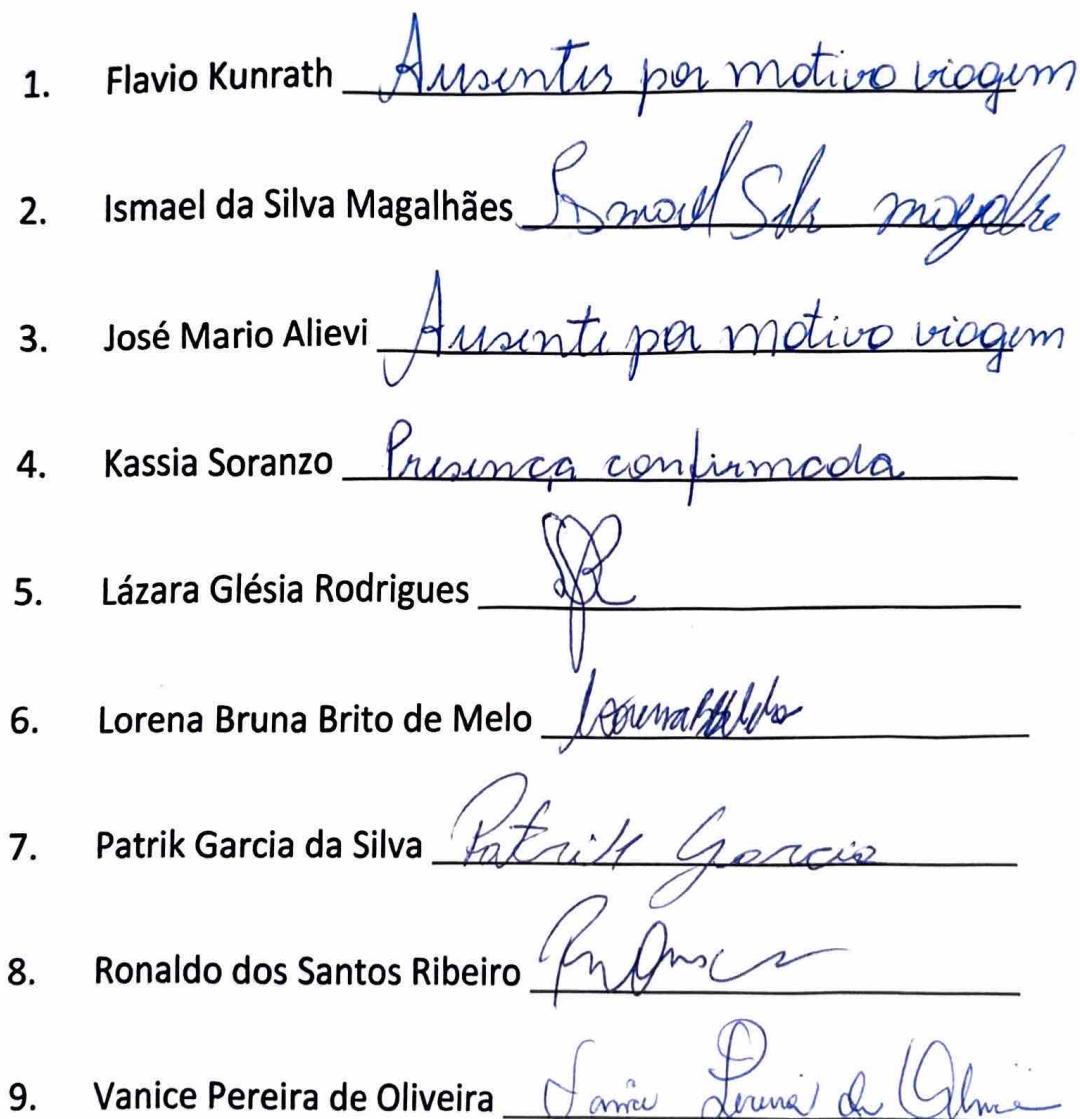 1. Flavio Kunrath Ausentes por motivo viagem
2. Ismael da Silva Magalhães Ismael Silv magalhe
3. José Mario Alievi Ausente por motivo viagem
4. Kassia Soranzo Presença confirmada
5. Lázara Glésia Rodrigues
6. Lorena Bruna Brito de Melo
7. Patrik Garcia da Silva Patrik Garcia
8. Ronaldo dos Santos Ribeiro
9. Vanice Pereira de Oliveira